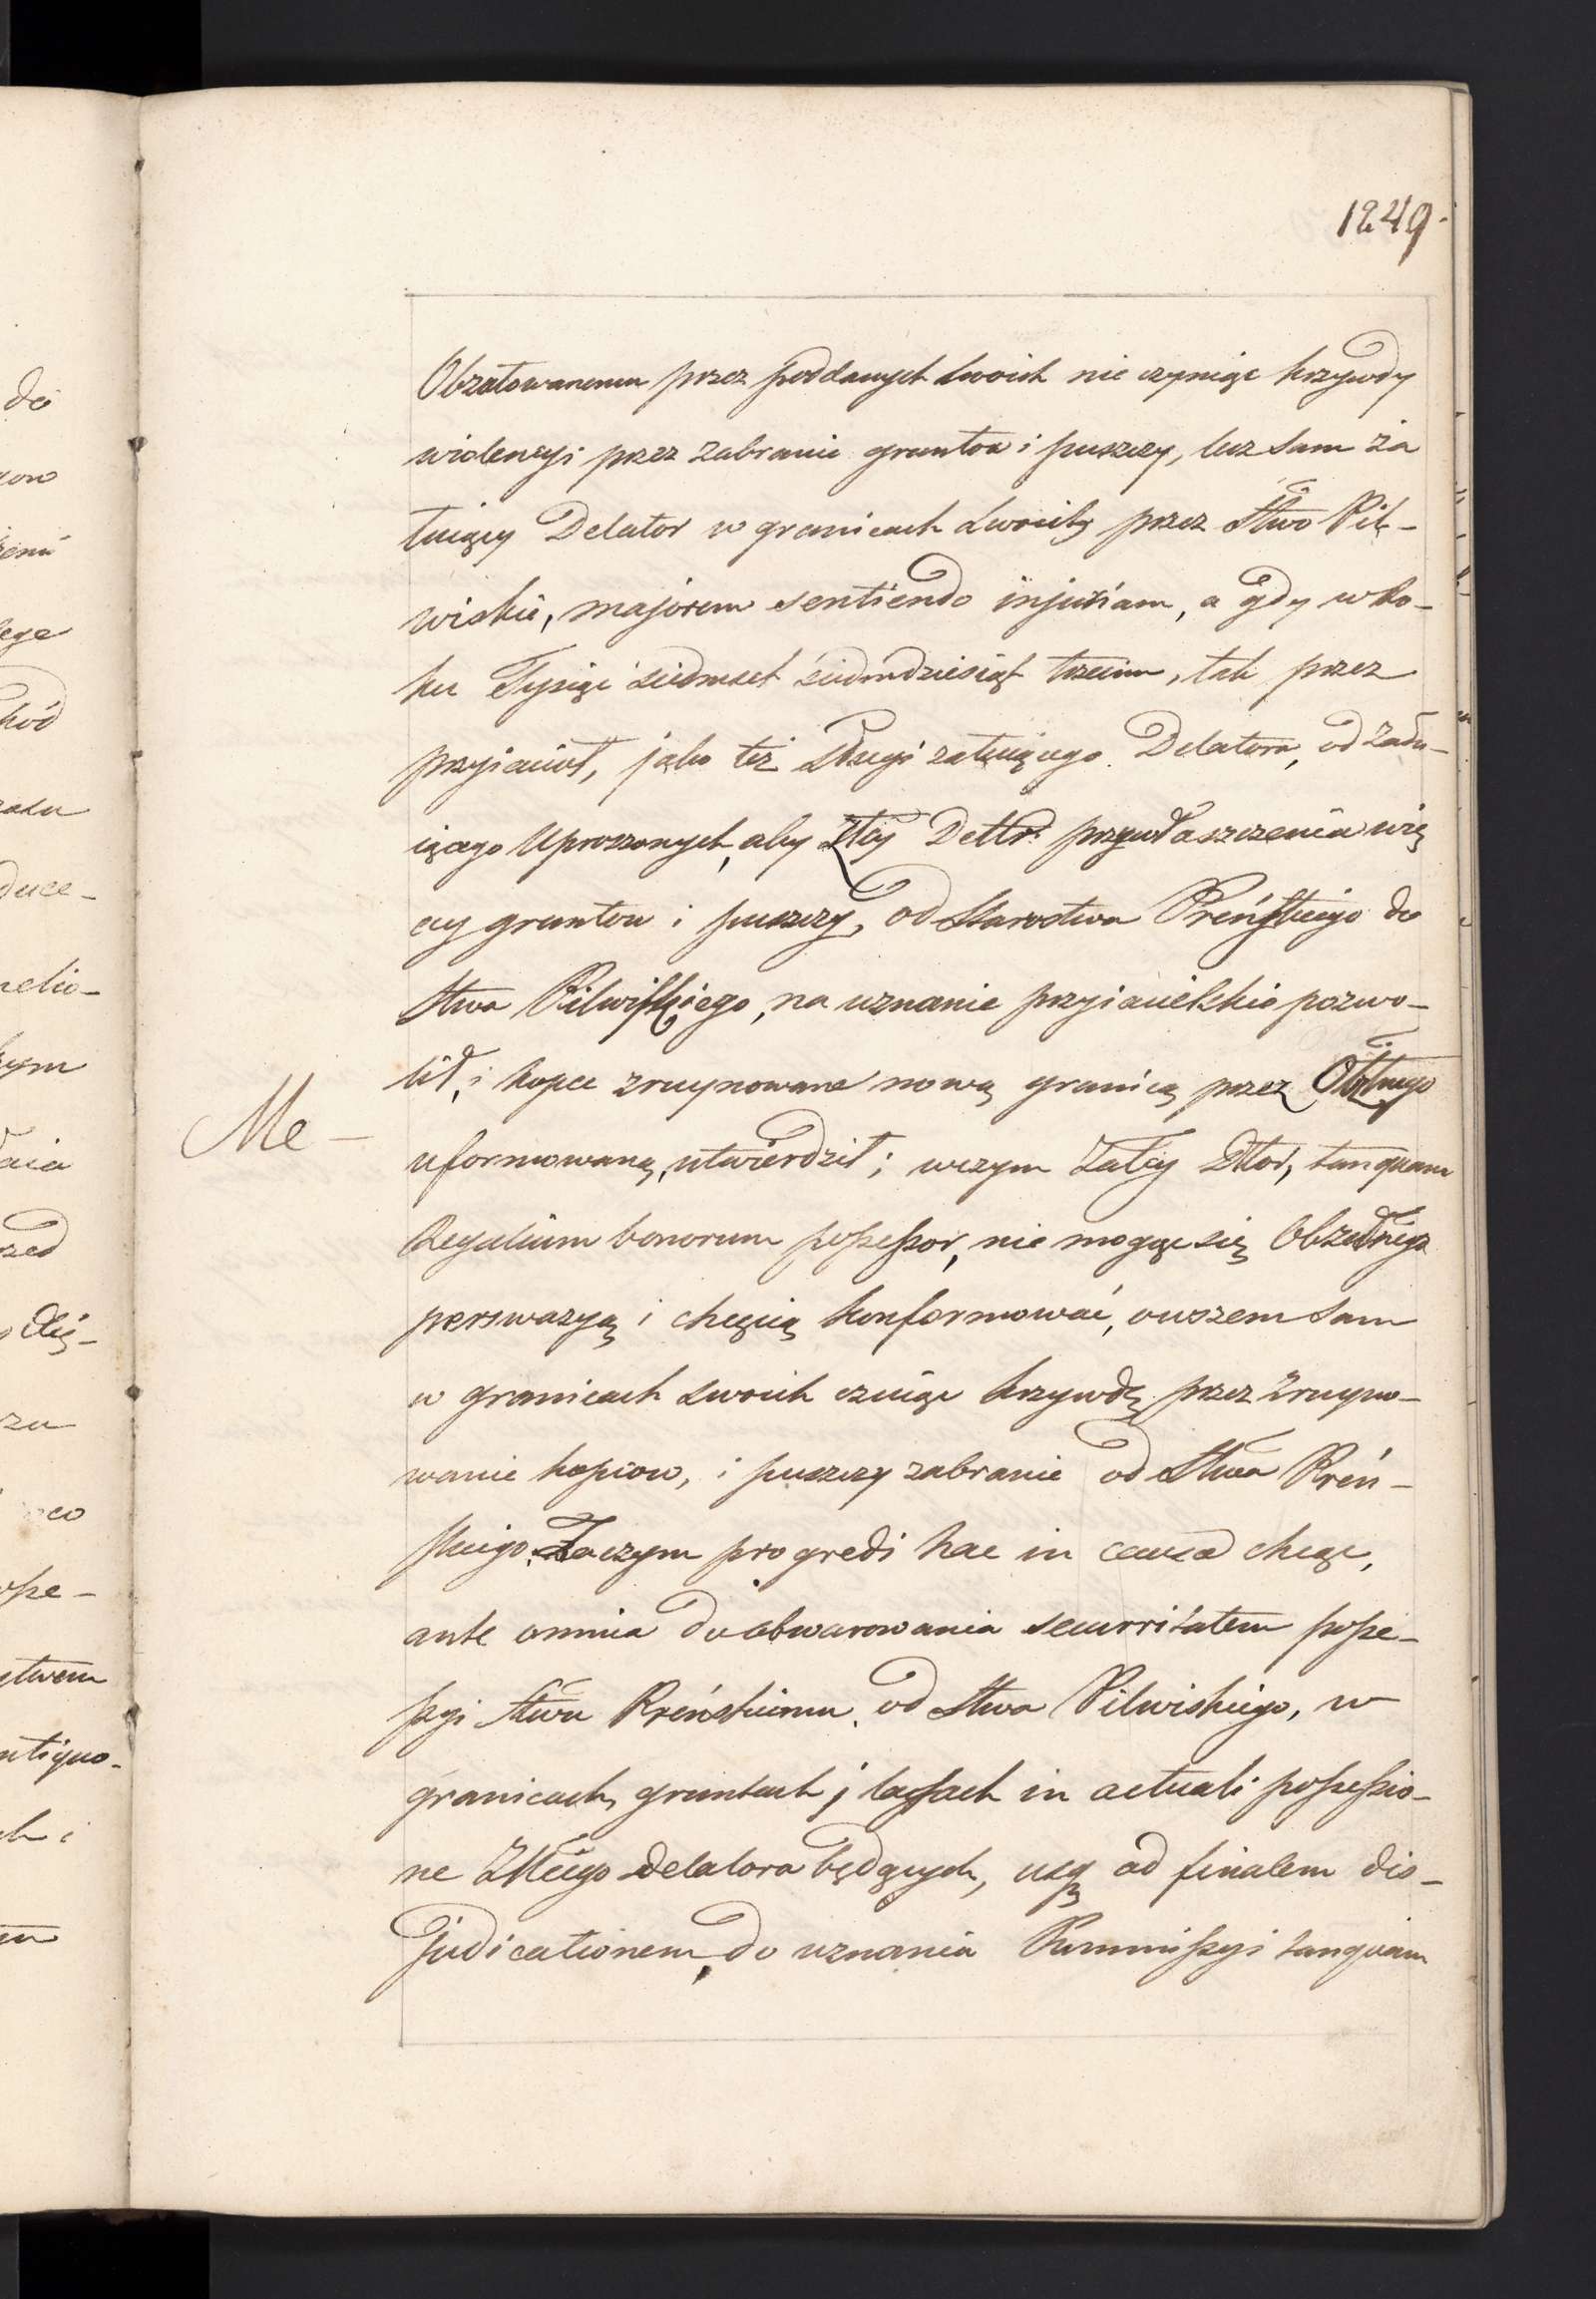 1249.
Obżałowanemu przez poddanych swoich nie czyniąc krzywdy
wiolencyi przez zabranie gruntow i puszczy, lecz sam ża
łuiący Delator w granicach swoich przez Stwo Pil-
wiskie, majorem sentiendo injuriam, a gdy w Ro-
ku Tysiąc siedmset siedmdziesiąt trzecim, tak przez
przyiacioł, jako też Sługi żałuiącego Delatora, od Żału-
iącego uproszonych, aby Żłcy Dettr. przywłaszczenia wię
cey gruntow i puszczy, od Starostwa Preńskiego do
Stwa Pilwiskiego, na uznanie przyiacielskie pozwo-
lił, i kopce zruynowane nową granicą przez Obżłnego
uformowaną, utwierdził; w czym Żałcy Dttor, tanquam
Regalium bonorum possessor, nie mogąc się Obżałnego
perswazyą i chęcią konformować, owszem sam
w granicach swoich czuiąc krzywdę przez zruyno-
wanie kopcow, i puszczy zabranie od Stwa Preń-
skiego. Zaczym progredi hac in causa chcąc,
ante omnia do obwarowania securritatem posse-
ssyi Stwu Preńskiemu od Stwa Pilwiskiego, w
granicach, gruntach j lassach in actuali possessio-
ne Żłłcego Delatora będących, usq ad finalem dis-
judicationem, do uznania Kommissyi tanquam
Me-